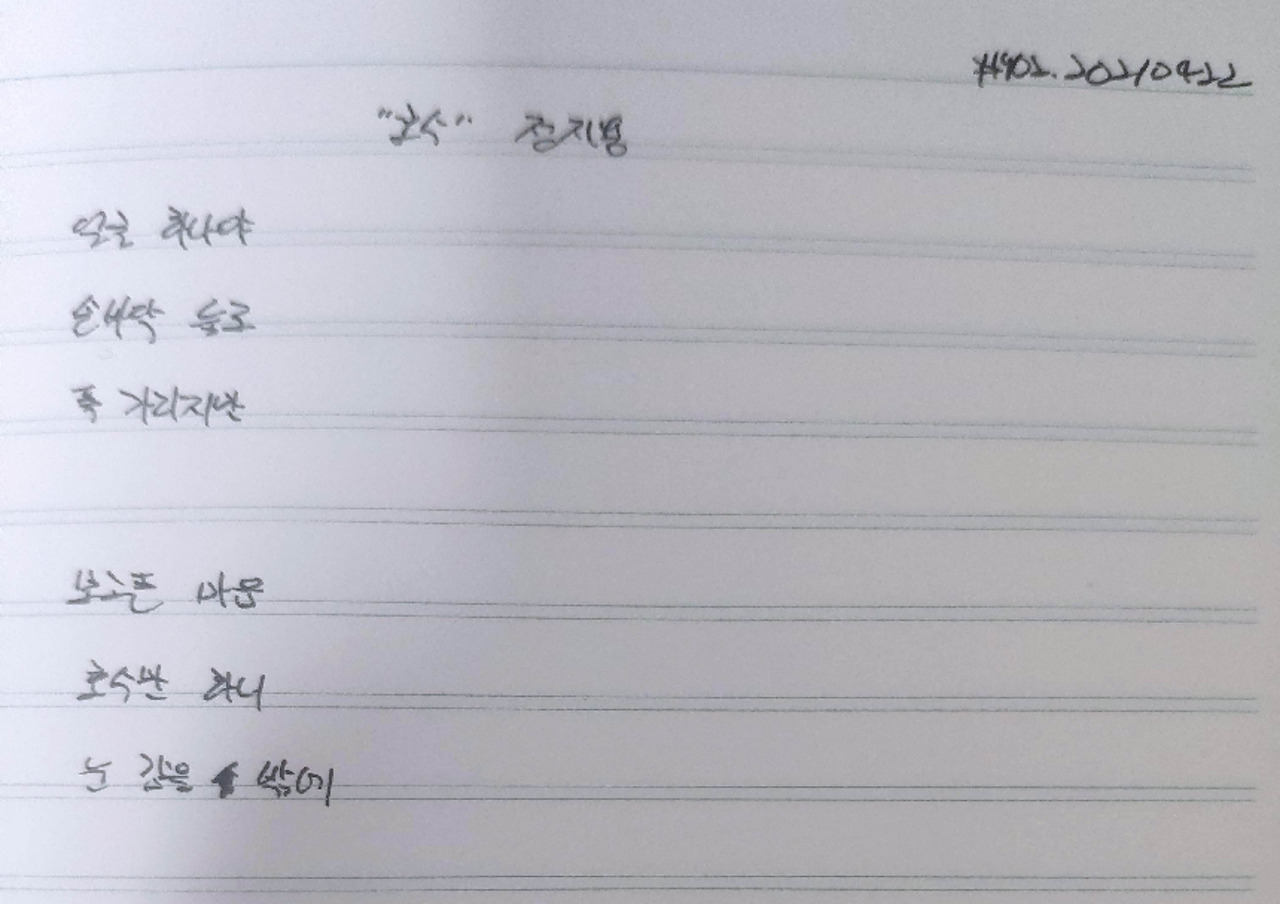 #902. 20210422
"호수" 정지용
얼굴 하나야
손바닥 둘로
폭 가리지만
보고픈 마음
호수만 하니
눈 감을 밖에